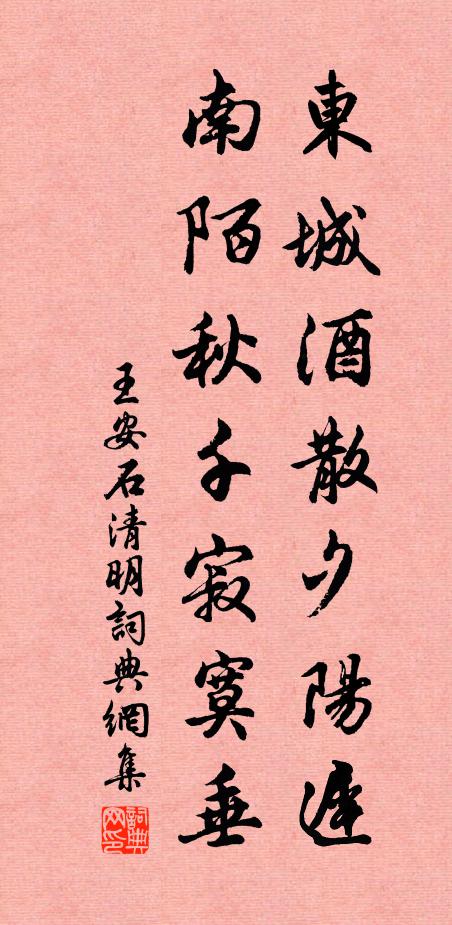 東城酒散夕陽遲
南陌秋千寂寞垂
王安石清明詞典網集
詞典
网印